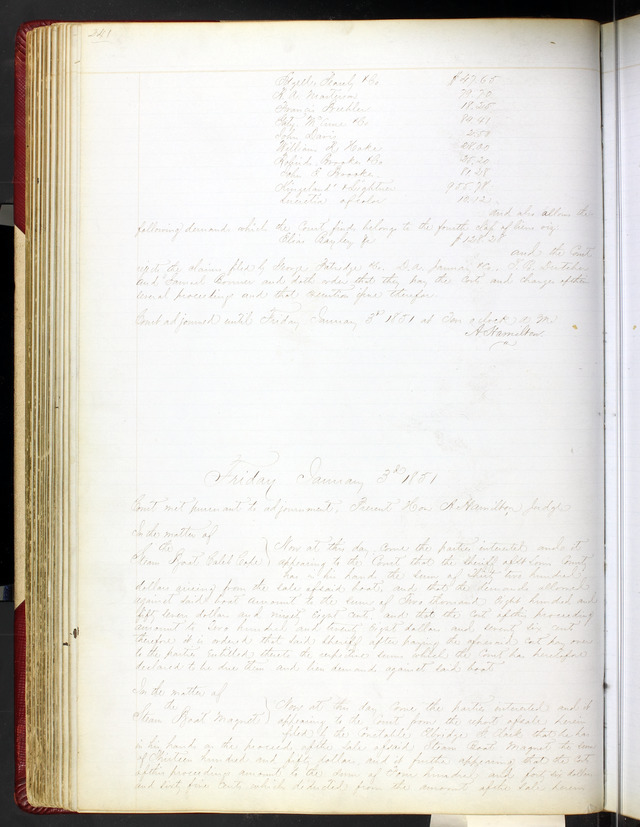 241
& Co $47.65
79.72
Francis 18.25
& Co 84.41
John Davis 2.50
William H. 28.00
Brooks & Co 28.20
John S. Brooks 81.28
Kingsland & Lightner 955.78
of color 19.12
and also allows the
following demand which the Court finds belongs to the fourth class of liens viz
$128.21
and the Court
rejects the claims filed by George & Co. D. A. January & Co.
and Samuel and doth order that they pay the costs and charges of their
several proceedings and that execution issue therefor
Court adjourned until Friday January 3d 1851 at Ten o'clock A. M.
A Hamilton
Friday January 3d 1851
Court met pursuant to adjournment. Present Hon A Hamilton Judge
In the matter of
the
Steam Boat Caleb Cope
Now at this day come the parties interested and it
appearing to the Court that the Sheriff of St Louis County
has in his hand the sum of thirty two hundred
dollars arising from the sale of said boat, and that the demands allowed
against said boat amount to the sum of Two thousand eight hundred and
fifty seven dollars and ninety eight cents and that the cost of the proceeding
amount to Two hundred and twenty eight dollars and seventy six cents
therefore it is ordered that said Sheriff after paying the aforesaid cost pay over
to the parties entitled thereto the respective sums which the Court has heretofore
declared to be due them and liens demands against said boat
In the matter of
the
Steam Boat Magnet
Now at this day come the parties interested and it
appearing to the Court from the report of sale herein
filed by the Constable Elbridge H. Clark that he has
in his hands as the proceeds of the sale of said Steam Boat Magnet the sum
of Thirteen hundred and fifty dollars, and it further appearing that the costs
of the proceedings amount to the sum of Four hundred and forty six dollars
and sixty five cents which deducted from the amount of the sale leaves